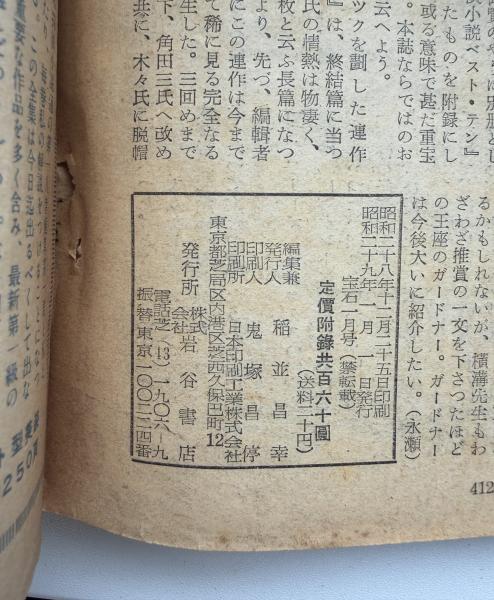 説小説ベスト・テン』
たものを附録にし
或る意味で甚だ重宝
。本誌ならではのお
云へよう。
ックを劃した連作
』は、終結篇に当つ
氏の情熱は物凄く、
枚と云ふ長篇になつ
より、先づ、編輯者
にこの連作は今まで
て稀に見る完全なる
生した。三回めまで
下、角田三氏へ改め
共に、木々氏に脱帽
るかもしれないが、横溝先生もわ
ざわざ推賞の一文を下さつたほど
の王座のガードナー。ガードナー
は今後大いに紹介したい。（永瀬）
昭和二十八年十二月二十五日印刷
昭和二十九年一月一日発行
宝石一月号（禁転載）
定價附錄共百六十圓
（送料二十円）
編集兼
発行人 稲並昌幸
印刷人 鬼塚昌停
印刷所 日本印刷工業株式会社
東京都芝局区内港区芝西久保巴町12
発行所 株式会社 岩谷書店
電話芝(43)一九〇六―九
振替東京一〇〇二二四番
412
この全集は今日迄出
重要な作品を多く含み、最新第一級の
250頁